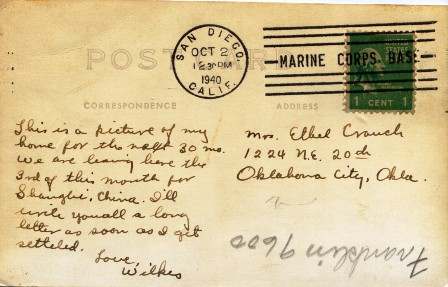 POST CARD
SAN DIEGO,
OCT 2
12 30 PM
1940
CALIF.
MARINE CORPS BASE
1 CENT 1
CORRESPONDENCE
ADDRESS
This is a picture of my
home for the next 30 mo.
We are leaving here the
3rd of this month for
Shanghi, China. I'll
write you all a long
letter as soon as I get
settled.
Love,
Wilkes
Mrs. Ethel Crouch
1224 N.E. 20th
Oklahoma City, Okla.
Franklin 9600